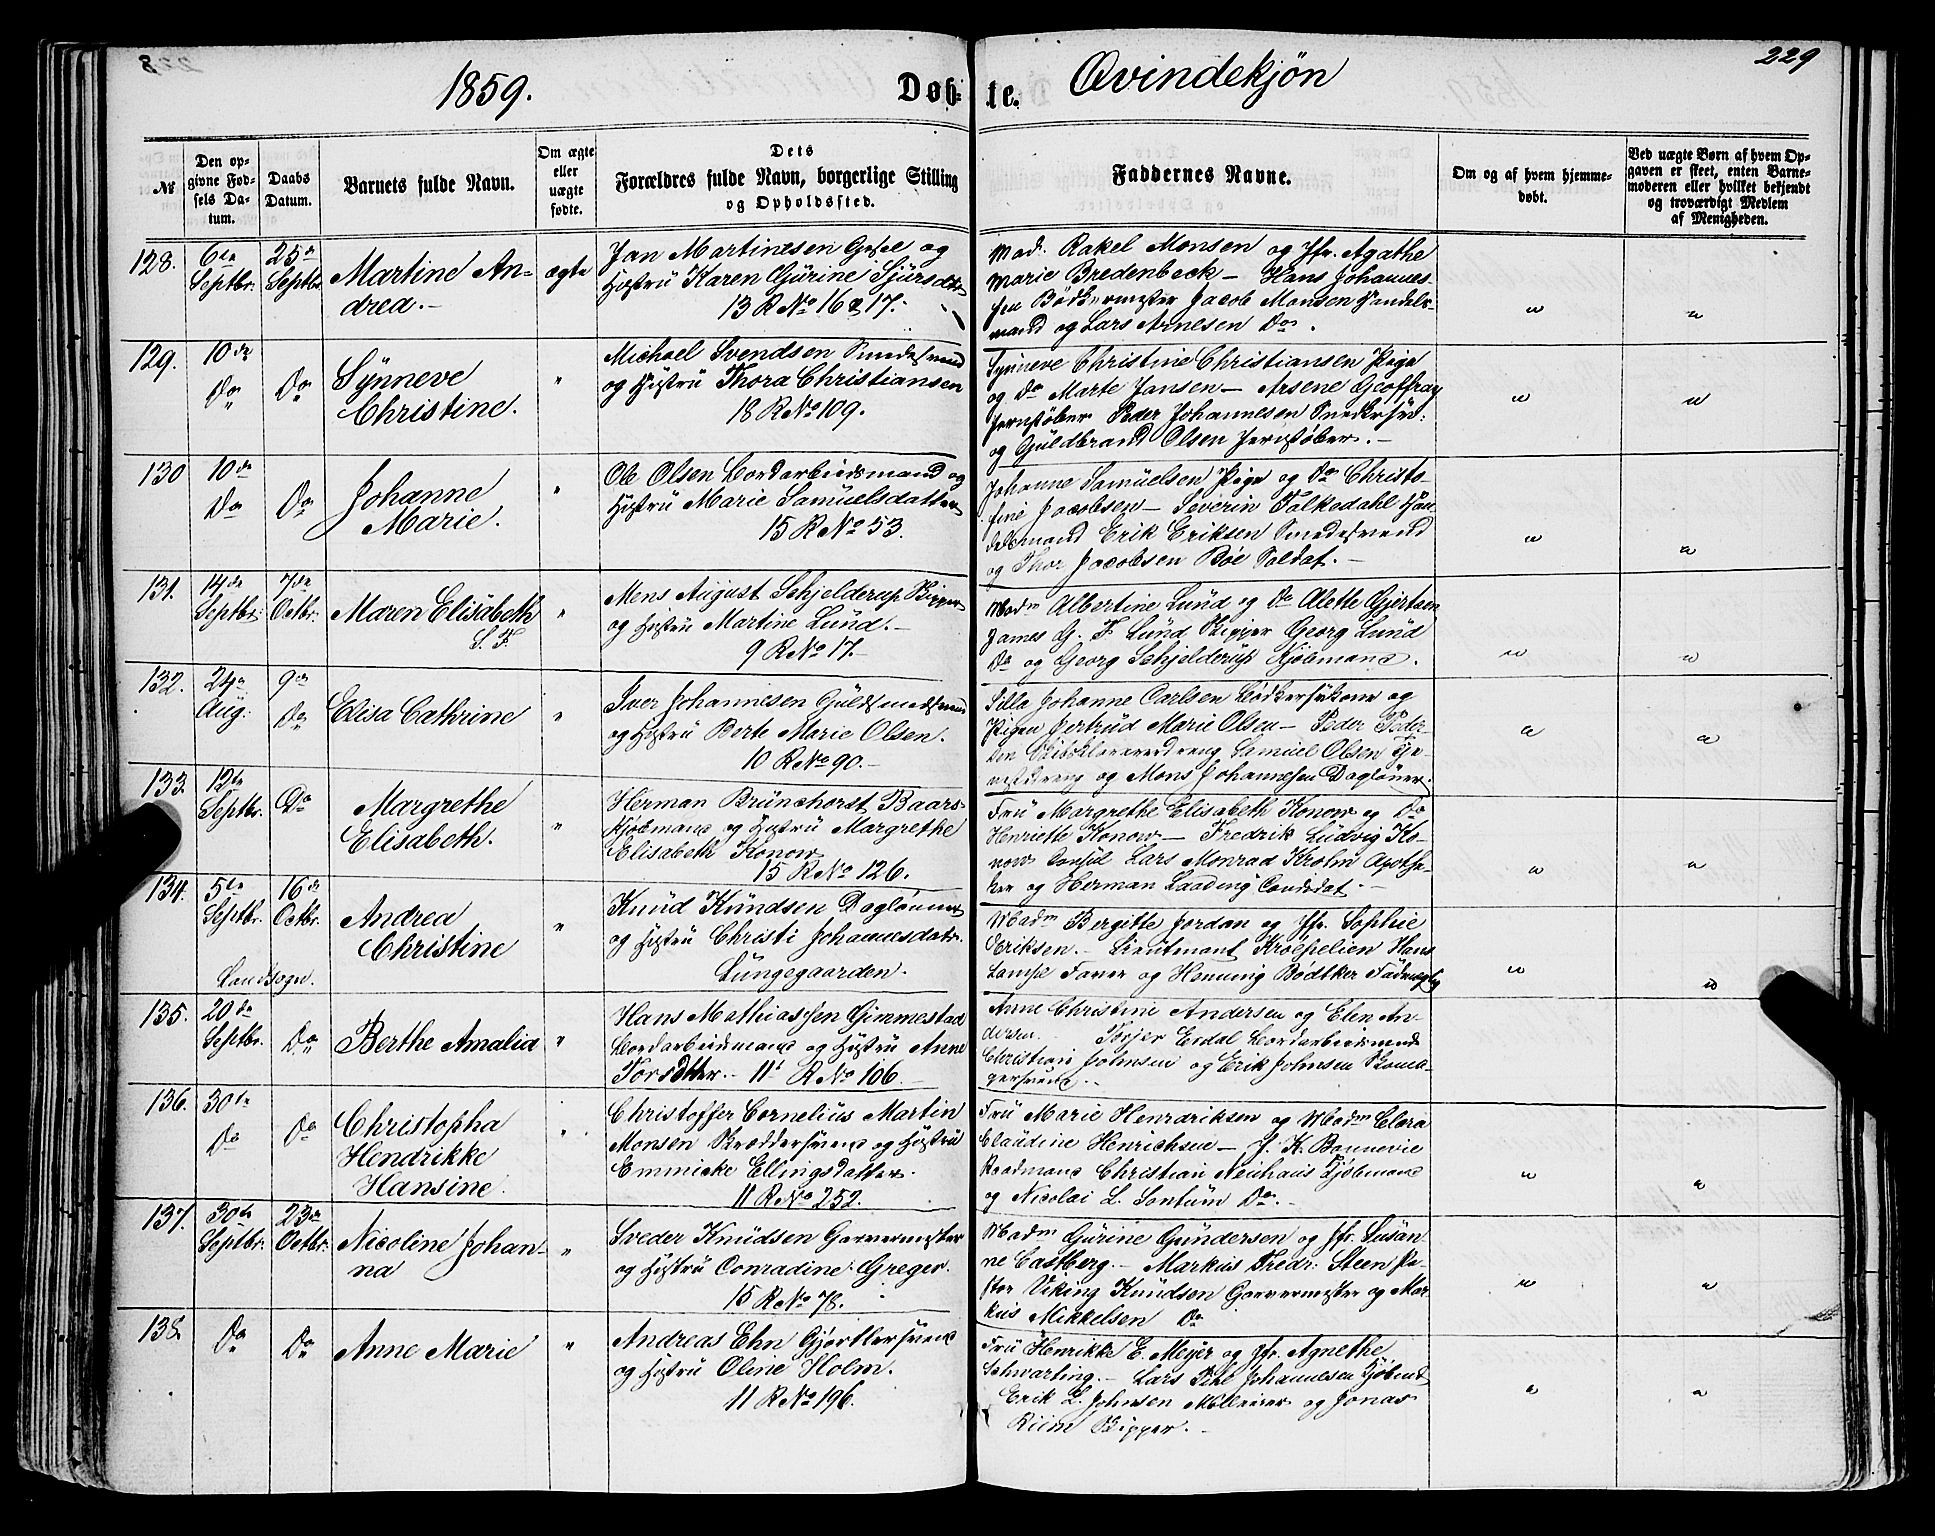 1859.
Døb-
te.
Qvindekjøn
229
№
Den op-
givne Fød-
sels Da-
tum.
Daabs
Datum.
Barnets fulde Navn.
Om ægte
eller
uægte
fødte.
Dets
Forældres fulde Navn, borgerlige Stilling
og Opholdssted.
Faddernes Navne.
Om og af hvem hjemme-
døbt.
Ved uægte Børn af hvem Op-
gaven er skeet, enten Barne-
moderen eller hvilket bekjendt
og troværdigt Medlem
af Menigheden.
128. 6te Septbr. 25de Septbr. Martine An-
drea.-
ægte
Jan Martinesen og
Hustru Karen Gurine Sjursdtr
13 R No 16 & 17.
Mad. Rakel Monsen og Jfr. Agathe
Marie Bredenbeck - Hans Johannes-
sen Bødkermester Jacob Monsen Handels-
mand og Lars Arnesen Do.
129. 10de Do Do Synneve
Christine.
"
Michael Svendsen Smedesvend
og Hustru Thora Christiansen
18 R No 109.
Synneve Christine Christiansen Pige
og Do Marte Jansen - Arsene Geoffray
Jernstøber Peder Johannesen Snedkersv:
og Guldbrand Olsen Jernstøber.-
130 10de Do Do Johanne
Marie.
"
Ole Olsen Bordarbeidsmand og
Hustru Marie Samuelsdatter
15 R No 53.
Johanne Samuelsen Pige og Do Christo-
fine Jacobsen - Severin Falkedahl Han-
delsmand Erik Eriksen Smedesvend
og Thor Jacobsen Bøe Soldat.-
131. 14de Septbr. 7de Octbr. Maren Elisabeth
S. F.
"
Mens August Schjelderup Skipper
og Hustru Martine Lund.-
9 R No 17.-
Madm Albertine Lund og Do Alette Gjertsen
James G. F. Lund Skipper Georg Lund
Do og Georg Schjelderup Kjøbmand.
132. 24de Aug. 9de Do Elisa Cathrine
"
Iver Johannesen Guldsmedsvend
og Hustru Berte Marie Olsen.
10 R No 90.-
Silla Johanne Carlsen Bødkersvkone og
Pigen Jertrud Marie Olsen - Peder Peder-
sen Samuel Olsen Tje-
nestdreng og Mons Johannesen Dagløner.
133. 12te Septbr. Do Margrethe
Elisabeth.
"
Herman Brunchorst Baars
Kjøbmand og Hustru Margrethe
Elisabeth Konow
15 R No 126.
Fru Margrethe Elisabeth Konow og Do
Henriette Konow - Fredrik Ludvig Ko-
now Consul Lars Monrad Krohn Apothe-
ker og Herman Laading Candidat.-
134. 5te Septbr. 16de Octbr. Andrea
Christine
Landsogn.
"
Knud Knudsen Dagløner
og Hustru Christi Johannesdatr.
Lungegaarden.
Madm Bergitte Jordan og Jfr. Sophie
Eriksen.- Lieutenant Kroepelien Hans
Lampe Faner og Henning Bødtker Fuldmægtig
135. 20de Septbr. Do Berthe Amalia
"
Hans Mathiassen Gimmestad
Bordarbeidsmand og Hustru Anne
Torsdtter.- 11 R No 106.
Anne Christine Andersen og Elen An-
dersen. Torjer Erdal Bordarbeidsmand
Christian Johnsen og Erik Johnsen Skoma-
gersvend.-
136. 30te Do Do Christopha
Hendrikke
Hansine.
"
Christoffer Cornelius Martin
Monsen Skreddersvend og Hustru
Emmicke Ellingsdatter.
11 R No 252.
Fru Marie Henrdriksen og Madm Clara
Claudine Henrichsen - J. K. Bonnevie
Raadmand Christian Neuhaus Kjøbmand
og Nicolai L. Sontum Do.-
137. 30te Septbr. 23de Octbr. Nicoline Johan-
na
"
Sveder Knudsen Garvermester
og Hustru Conradine Greger.
15 R No 78.
Madm Gurine Gundersen og Jfr. Susan-
ne Castberg.- Markus Fredr. Steen Pa-
stor Viking Knudsen Garvermester og Mar-
kus Mikkelsen Do
138. Do Do Anne Marie
"
Andreas Ehn Gjørtlersvend
og Hustru Oline Holm.
11 R No 196.
Fru Henrikke E. Meyer og Jfr. Agnethe
Schwarting.- Lars Pihl Johannesen Kjøbmd
Erik L. Johnsen og Jonas
Riim Skipper.-